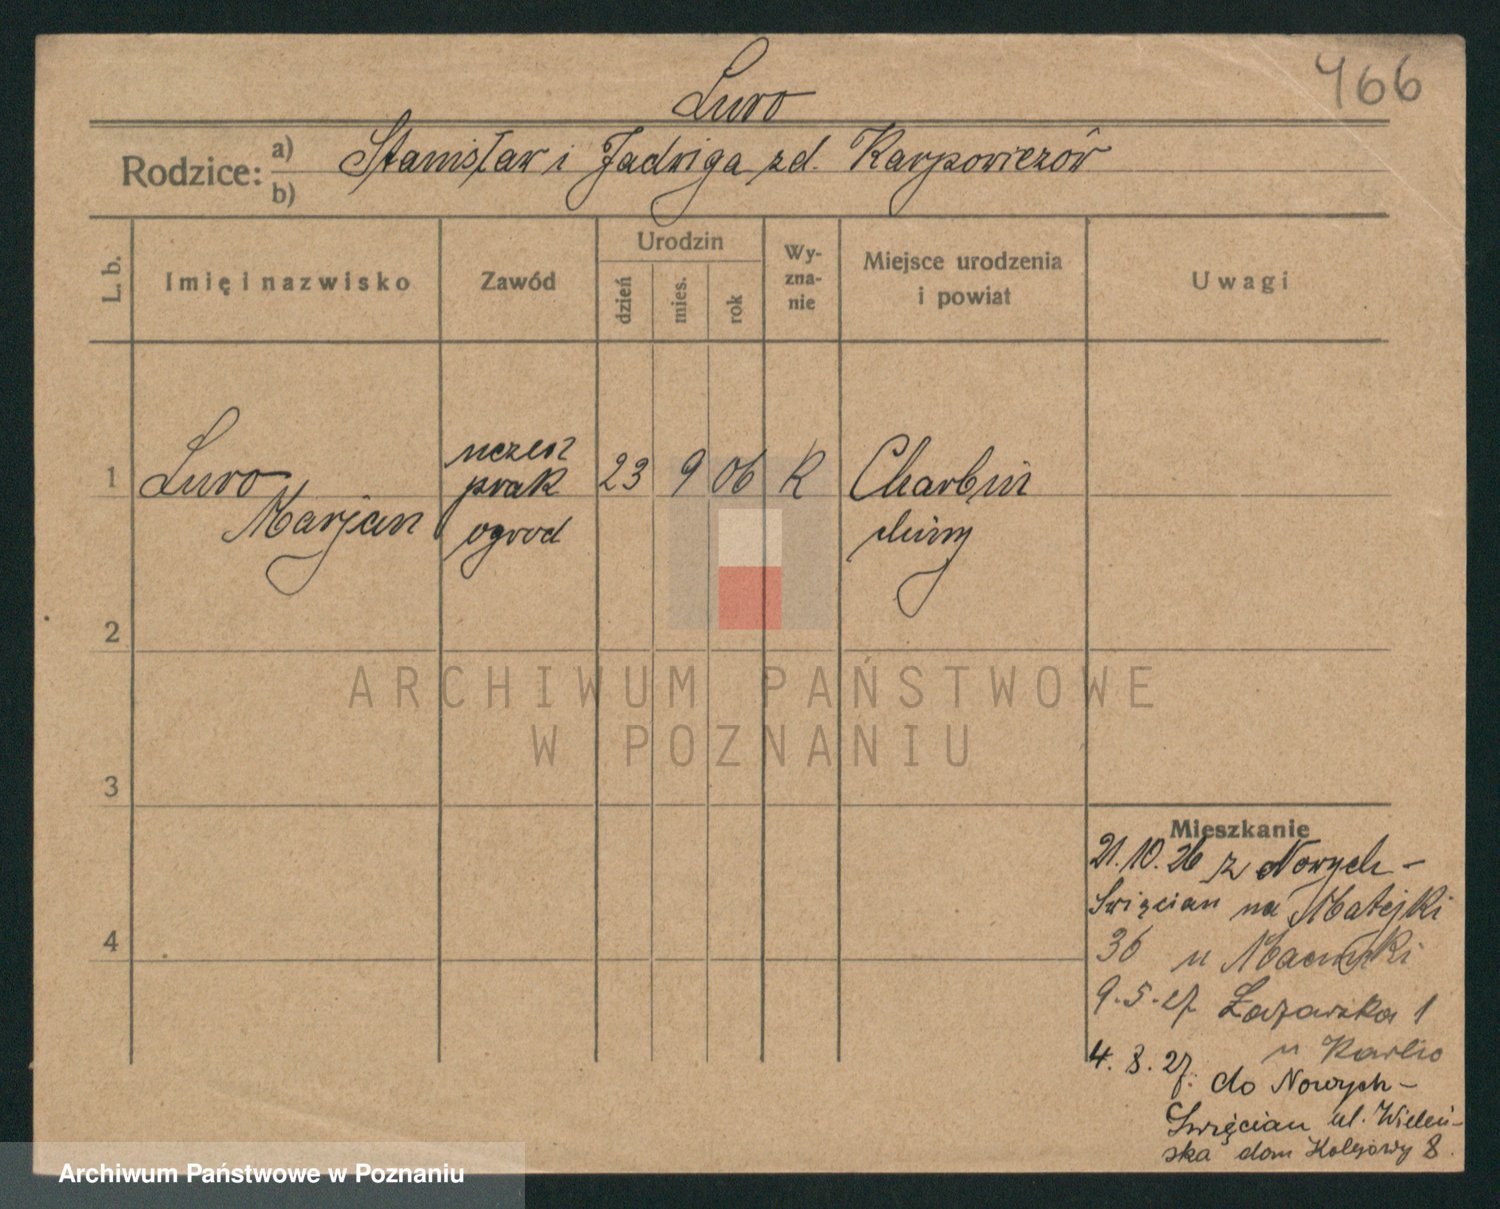 466
Luro
Rodzice: a) Stanisław i Jadwiga zd. Karpowiczów
b)
L. b.
Imię i nazwisko
Zawód
Urodzin
dzień
mies.
rok
Wy-
zna-
nie
Miejsce urodzenia
i powiat
Uwagi
1
Luro
Marjan
uczeń
prak
ogrod
23 9 06 K
Charbin
chiny
2
3
4
ARCHIWUM PAŃSTWOWE
W POZNANIU
Mieszkanie
21.10.26 z Nowych-
Swięcian na Matejki
36 u
9.5.27 1
u
4.8.27. do Nowych-
Swięcian ul. Wileń-
ska dom Kolejowy 8.
Archiwum Państwowe w Poznaniu